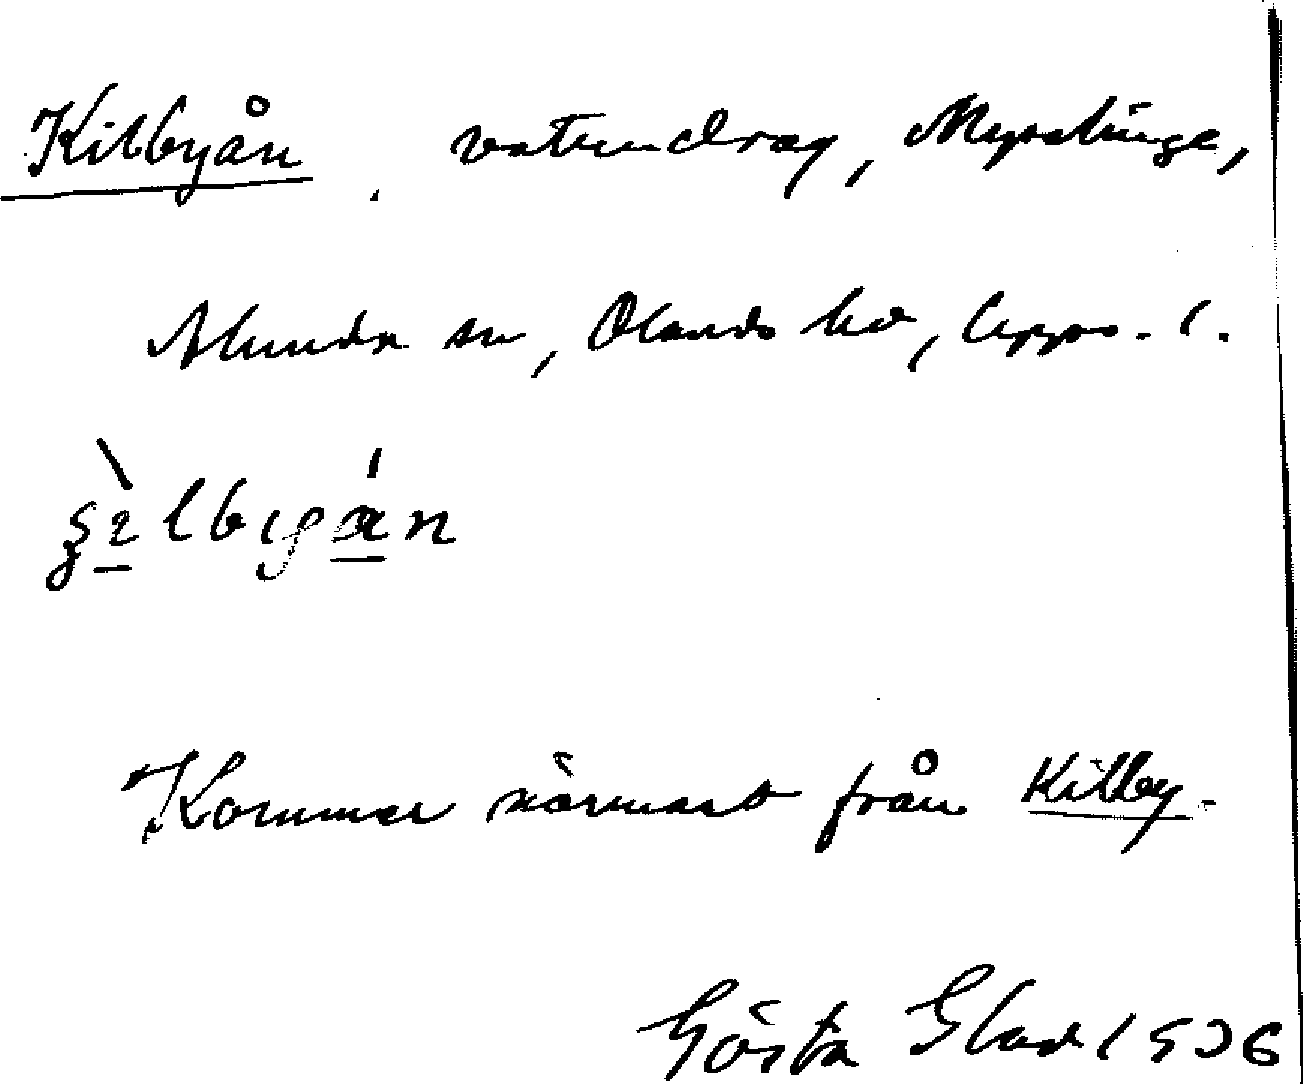 Kilbyån, vattendrag, Myrslinge,
Alunda sn, Olands hd, Upps. l.
Kommer närmast från Kilby.
Gösta Glad 1936